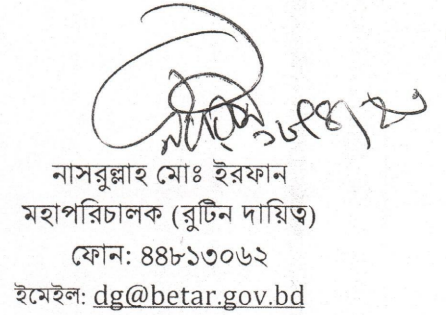 নাসরুল্লাহ মোঃ ইরফান
মহাপরিচালক (রুটিন দায়িত্ব)
ফোন: ৪৪৮১৩০৬২
ইমেইল: dg@betar.gov.bd